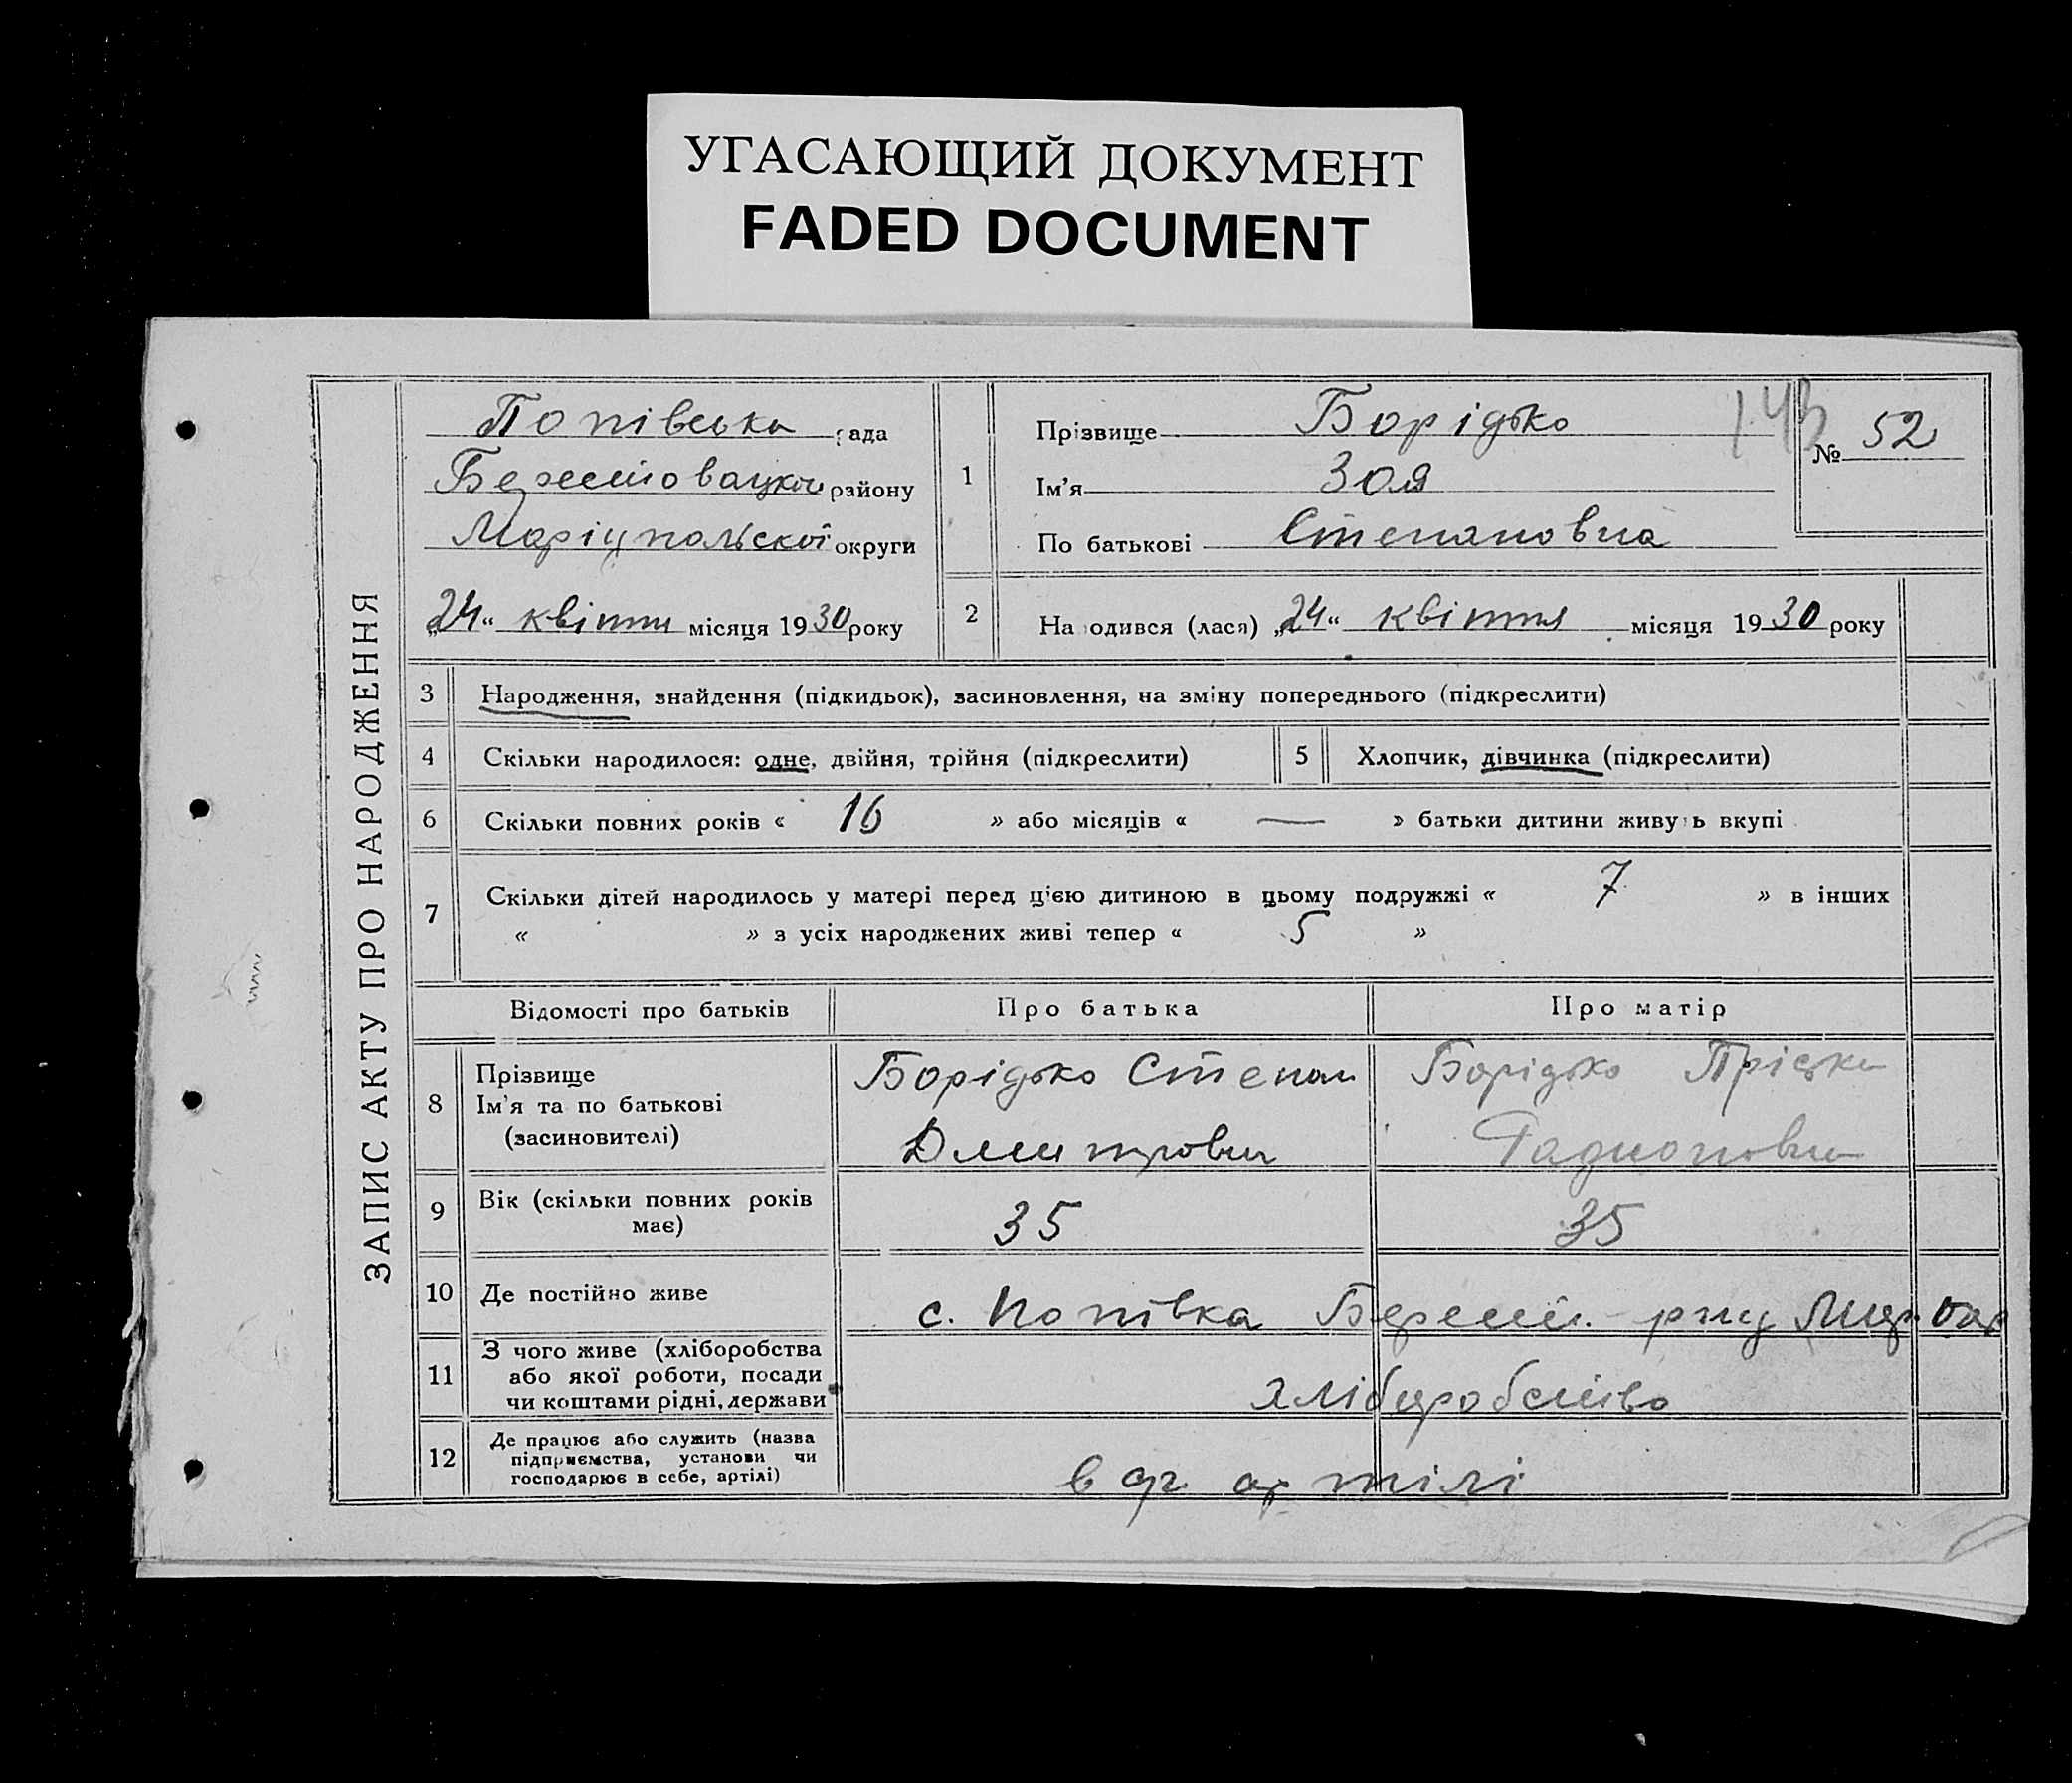 УГАСАЮЩИЙ ДОКУМЕНТ
FADED DOCUMENT
ЗАПИС АКТУ ПРО НАРОДЖЕННЯ
Попівська рада
району
Маріупольскої округи
„24“ квітня місяця 1930 року
1
Прізвище Борідько
Ім'я Зоя
По батькові Степановна
143
№ 52
2 На одився (лася) „24“ квітня місяця 1930 року
3 Народження, знайдення (підкидьок), засиновлення, на зміну попереднього (підкреслити)
4 Скільки народилося: одне, двійня, трійня (підкреслити) 5 Хлопчик, дівчинка (підкреслити)
6 Скільки повних років « 16 » або місяців « — » батьки дитини живуть вкупі
7 Скільки дітей народилось у матері перед цією дитиною в цьому подружжі « 7 » в інших
« » з усіх народжених живі тепер « 5 »
Відомості про батьків Про батька Про матір
8 Прізвище
Ім'я та по батькові
(засиновителі)
Борідько Степан
Дмитрович
Борідько Пріська
9 Вік (скільки повних років
має)
35 35
10 Де постійно живе с. Попівка
11 З чого живе (хліборобства
або якої роботи, посади
чи коштами рідні, держави
хліборобство
12 Де працює або служить (назва
підприємства, установи чи
господарює в себе, артілі)
в артілі